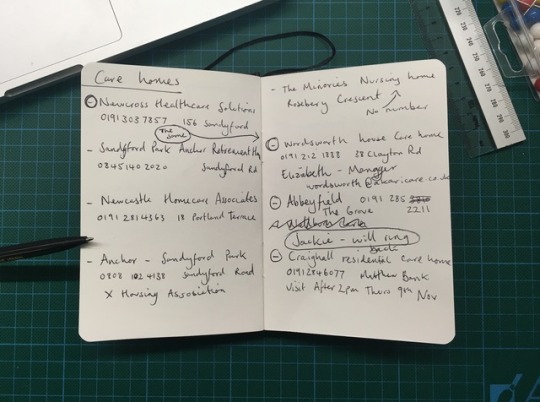 Care homes
Newcross Healthcare Solutions
0191 303 7857 156 Sandyford
The same
- Sandyford Park Anchor Retirement
0845 140 2020 Sandyford Rd
- Newcastle Homecare Associates
0191 2814363 18 Portland Terrace
- Anchor - Sandyford Park
0808 102 4138 Sandyford Road
X Housing Association
- The Minories Nursing home
Rosebery Crescent
No number
Wordsworth house Care home
0191 212 1888 38 Clayton Rd
Elizabeth - Manager
wordsworth@akaricare.co.uk
Abbeyfield 0191 285
The Grove 2211
Jackie - will ring
back
Craighall residential care home
0191 2846077 Matthew Bank
Visit After 2pm Thurs 9th Nov